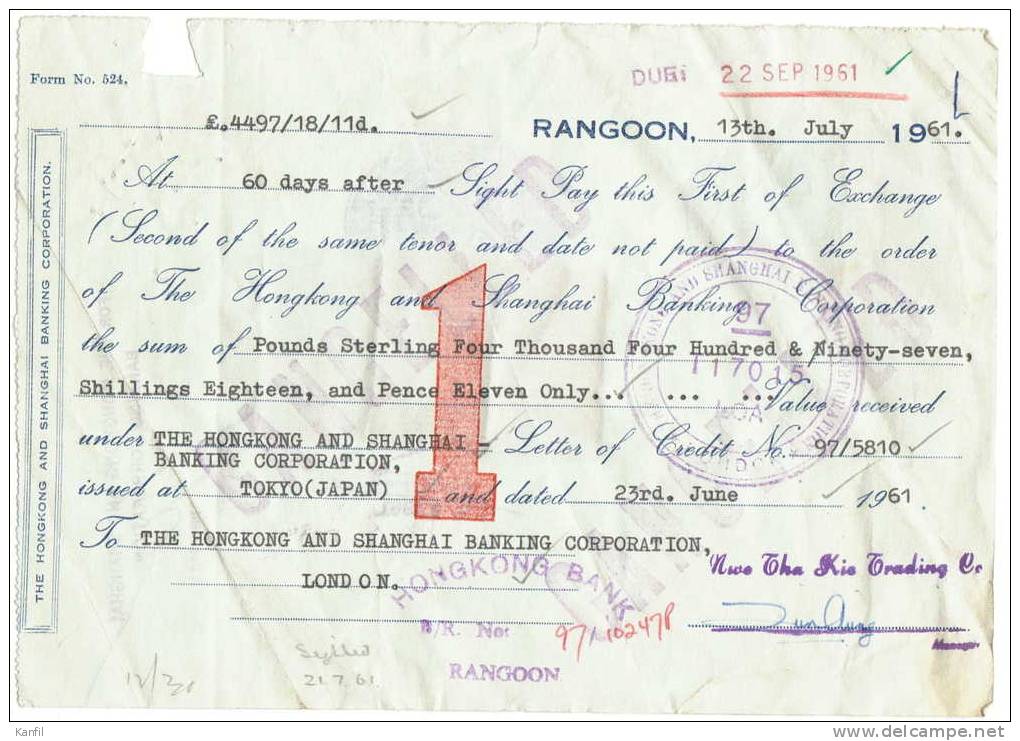 Form No. 524.
DUE: 22 SEP 1961
£.4497/18/11d. RANGOON, 13th. July 1961.
At 60 days after Sight Pay this First of Exchange
(Second of the same tenor and date not paid) to the order
of The Hongkong and Shanghai Banking Corporation
the sum of Pounds Sterling Four Thousand Four Hundred & Ninety-seven,
Shillings Eighteen, and Pence Eleven Only... ... ... Value received
under THE HONGKONG AND SHANGHAI - Letter of Credit No. 97/5810
BANKING CORPORATION,
issued at TOKYO(JAPAN) and dated 23rd. June 1961
To THE HONGKONG AND SHANGHAI BANKING CORPORATION,
LONDON.
THE HONGKONG AND SHANGHAI BANKING CORPORATION.
1
97
117015
HONGKONG BANK
B/R. No: 97/10247P
RANGOON
Nwe Tha Kie Trading Co
Manager
12/31
21.7.61
Kanfil
delcampe.net